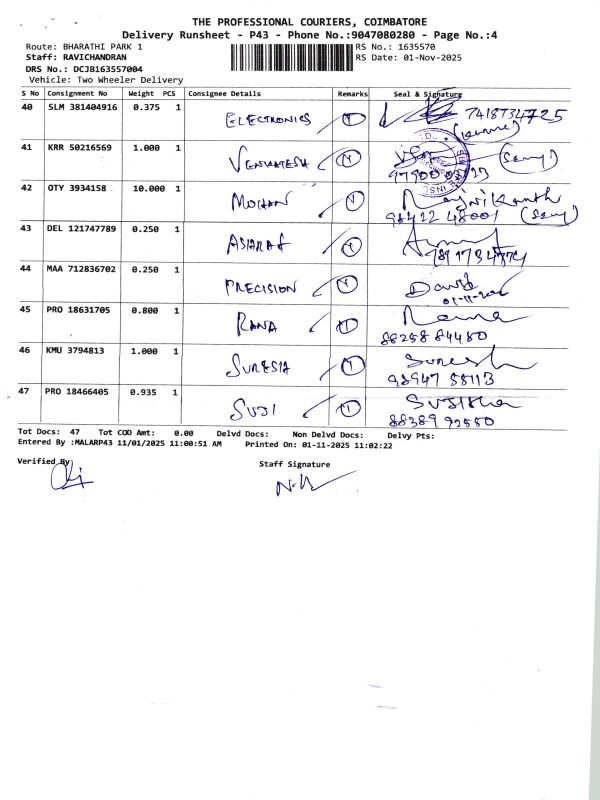 THE PROFESSIONAL COURIERS, COIMBATORE
Delivery Runsheet - P43 - Phone No.:9047080280 - Page No.:4
Route: BHARATHI PARK 1 RS No.: 1635570
Staff: RAVICHANDRAN RS Date: 01-Nov-2025
DRS No.: DCJB163557004
Vehicle: Two Wheeler Delivery
S No Consignment No Weight PCS Consignee Details Remarks Seal & Signature
40 SLM 381404916 0.375 1 ELECTRONICS 7418734725
41 KRR 50216569 1.000 1 VENKATESH
42 OTY 3934158 10.000 1 MOHAN Rajnikanth
98422 48001
43 DEL 121747789 0.250 1 ASHARAF
44 MAA 712836702 0.250 1 PRECISION David
01-11-2025
45 PRO 18631705 0.800 1 RANA Rana
88258 84480
46 KMU 3794813 1.000 1 SURESH Suresh
98947 55113
47 PRO 18466405 0.935 1 SUJI
88389 92550
Tot Docs: 47 Tot COD Amt: 0.00 Delvd Docs: Non Delvd Docs: Delvy Pts:
Entered By :MALARP43 11/01/2025 11:00:51 AM Printed On: 01-11-2025 11:02:22
Verified By Staff Signature